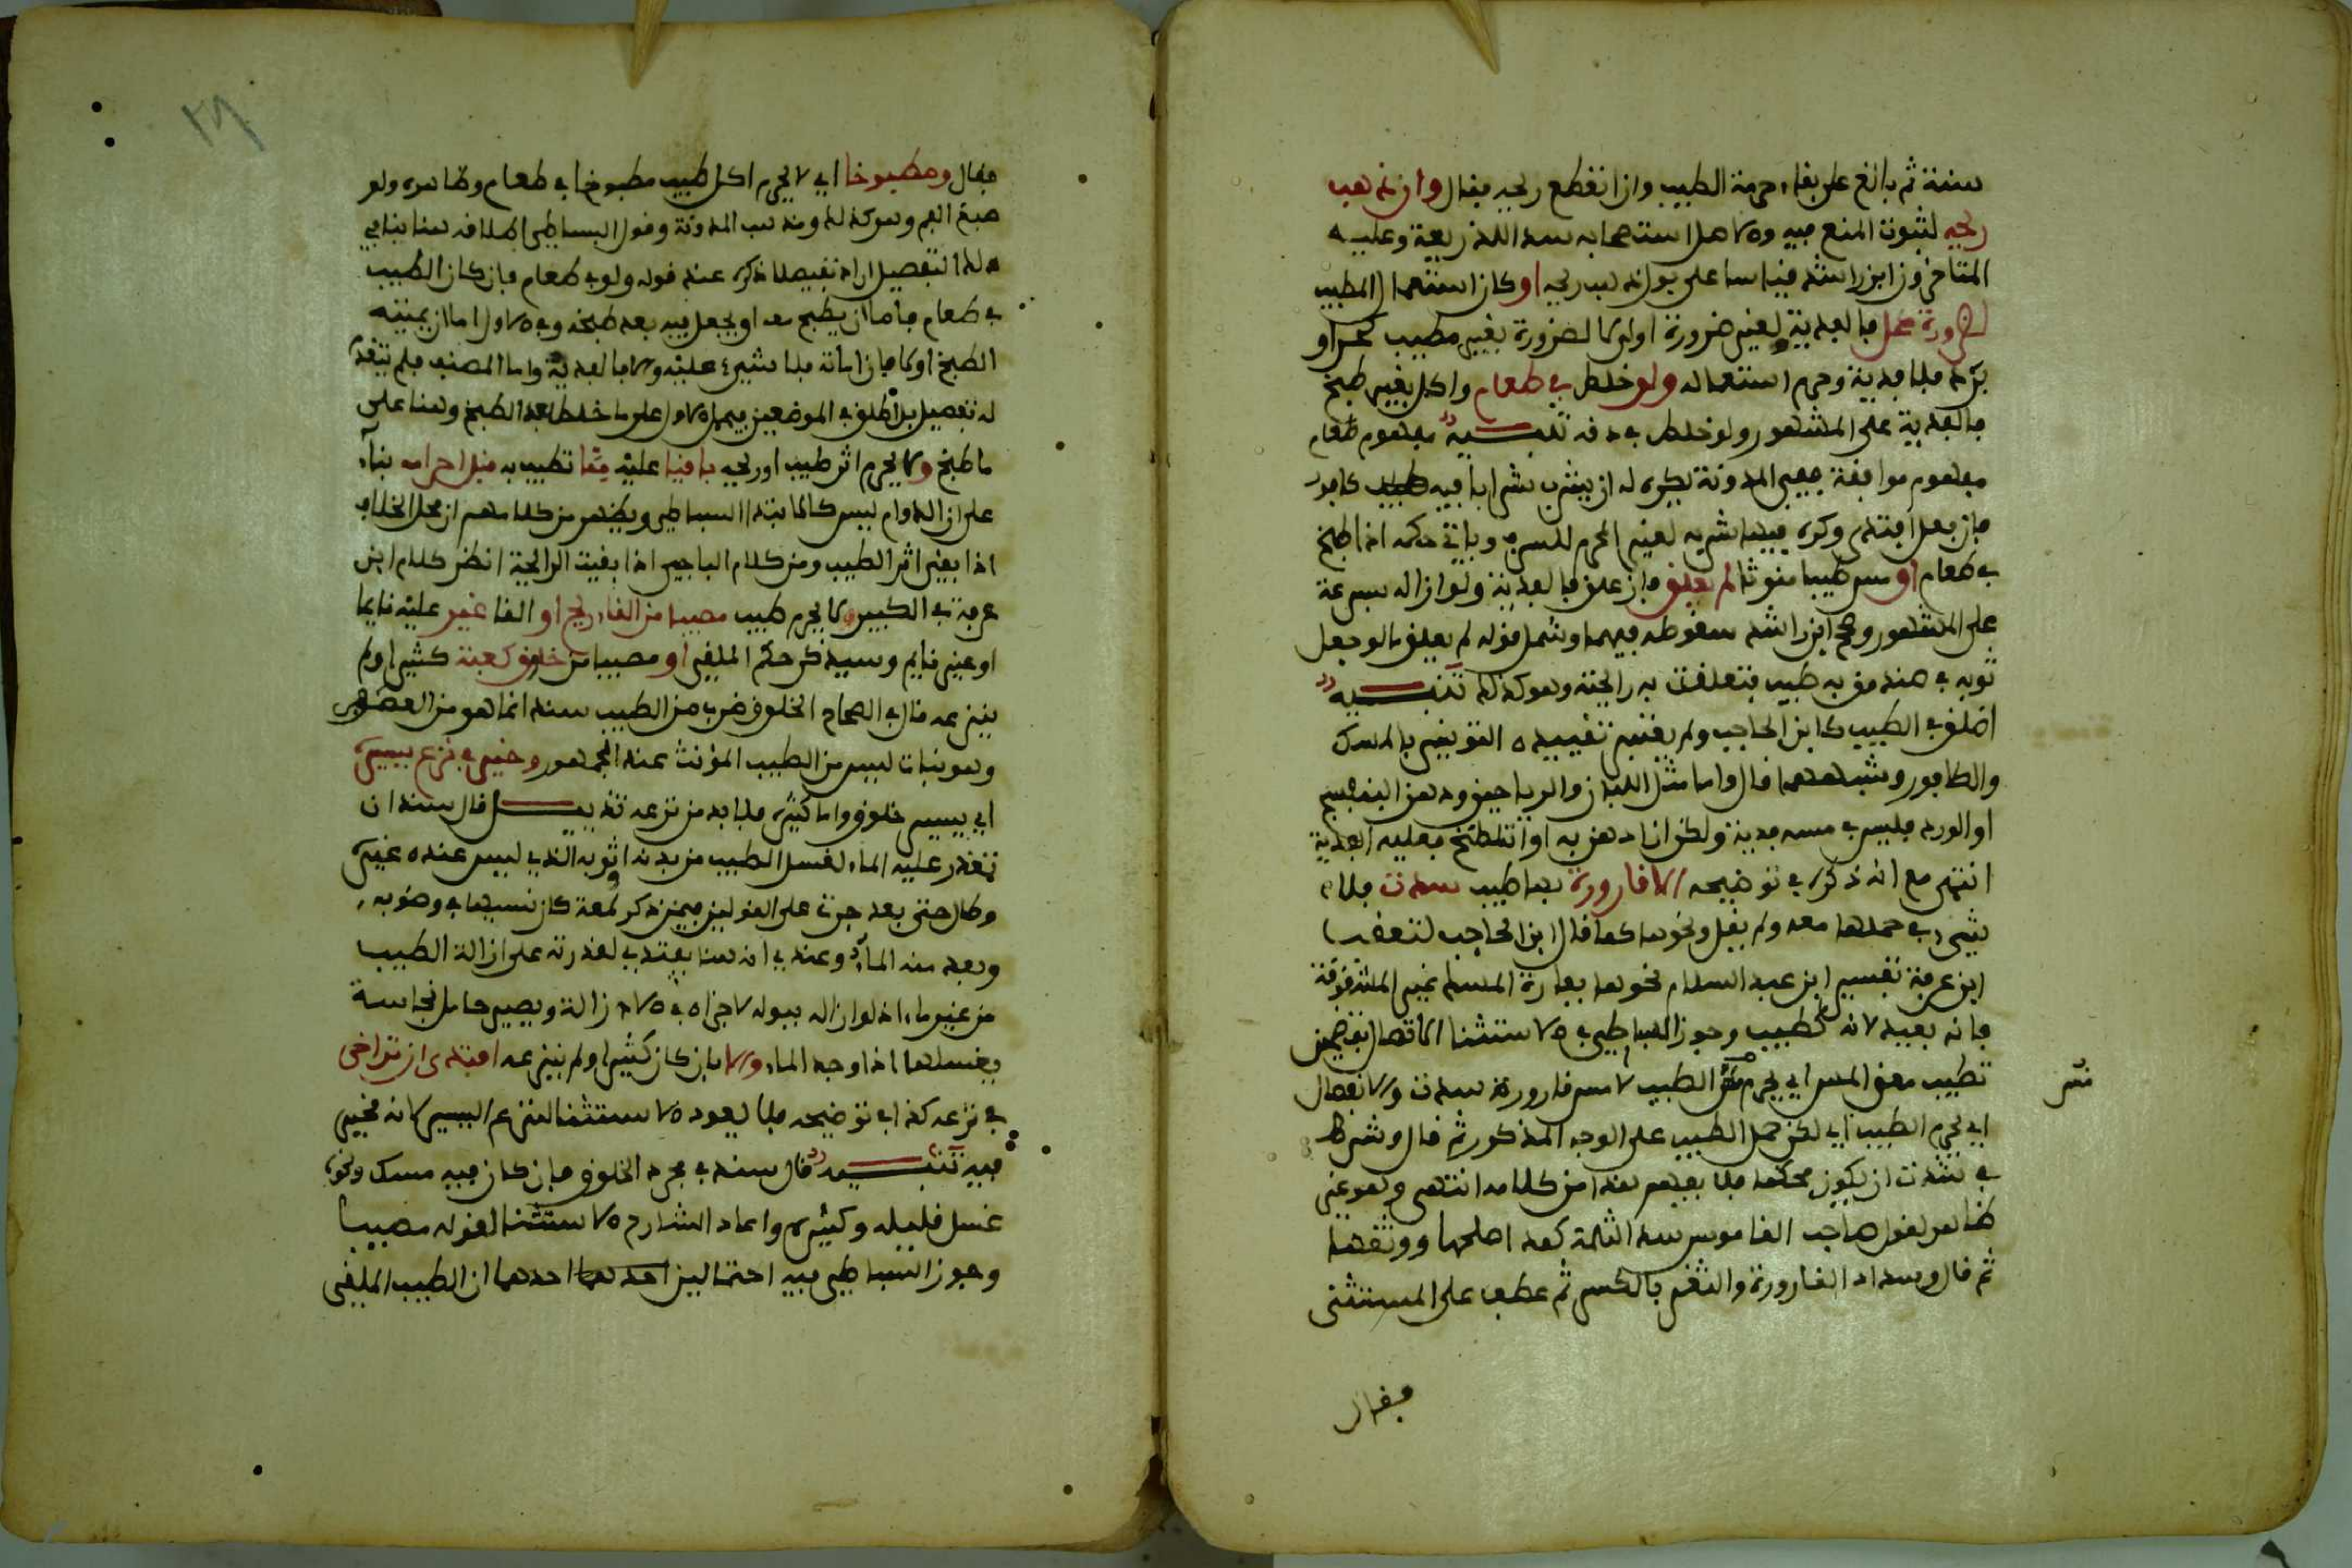 سنة ثم بالغ على بقاء حرمة الطيب وان انقطع ريحه فقال وان ذهب
ريحه لثبوت المنع فيه والاصل استصحابه سد اللذريعة وعليه
المتاخرون ابن راشد قياسا على بول ذهب ريحه او كان استعمال المطيب
لضرورة كحل فالفدية ولغير ضرورة اولى لا لضرورة بغير مطيب كحر او
برد فلا فدية وحرم استعماله ولو خلط في طعام واكل بغير طبخ
فالفدية على المشهور ولو خلط بمدقه تنبيه مفهوم طعام
مفهوم موافقة ففي المدونة يكره له ان يشرب شرابا فيه كافور
فان فعل افتدى وكره فيها شربه لغير المحرم للسرف وياتي حكمه اذا طبخ
في طعام او مس طيبا مؤنثا لم يعلق فان علق فالفدية ولو ازاله بسرعة
على المشهور وصحح ابن راشد سقوطه فيهما وشمل قوله لم يعلق ما لو جعل
ثوبه في صندوق به طيب فتعلقت به رائحته وهو كذلك تنبيه
اطلق في الطيب كابن الحاجب ولم يعتبر تقييده التونسي بالمسك
والكافور وشبههما قال واما مثل اللبان والرياحين ودهن البنفسج
او الورد فليس في مسه فدية ولكن ان ادهن به او تلطخ فعليه الفدية
انتهى مع انه ذكره في توضيحه الا قارورة بها طيب سدت فلا
شيء في حملها معه ولم يقل ونحوها كما قال ابن الحاجب لتعقب
ابن عرفة تفسير ابن عبد السلام نحوها بفارة المسك غير المشقوقة
فانه بعيد لانه كطيب وجوز البساطي في الاستثنا الاتصال بتضمين
تطيب معنى المس اي يحرم مس الطيب لا مس قارورة سدت والانفصال
اي يحرم الطيب اي لكن حمل الطيب على الوجه المذكور ثم قال وشرط
في شدت ان يكون محكما فلا يفهم هذا من كلامه انتهى وهو غير
ظاهر لقول صاحب القاموس سد الثلمة كمد اصلحها ووثقها
ثم قال وسداد القارورة والثغر بالكسر ثم عطف على المستثنى
فقال
فقال ومطبوخا اي لا يحرم اكل طيب مطبوخ اي طعام وظاهره ولو
صبغ الفم وهو كذلك ومذهب المدونة وقول البساطي اطلاقه هنا ينافي
ذلك التفصيل اراد تفصيلا ذكره عند قوله ولو في طعام فان كان الطيب
في طعام فاما ان يطبخ معه او يجعل فيه بعد طبخه وفي الاول اما ان يميته
الطبخ او لا فان اماته فلا شيء عليه والا فالفدية واما المصنف فلم يتقدم
له تفصيل بل اطلق في الموضعين فيحمل الاول على ما خلط بعد الطبخ وهنا على
ما طبخ ولا يحرم اثر طيب او ريحه باقيا عليه مما تطيب به قبل احرامه بناء
على ان الدوام ليس كالابتداء البساطي ويظهر من كلامهم ان محل الخلاف
اذا بقي اثر الطيب ومن كلام الباجي اذا بقيت الرائحة انظر كلام ابن
عرفة في الكبير ولا يحرم طيب مصيبا من القاء ريح او القا غير عليه نايما
او غير نايم وسيذكر حكم الملقي او مصيبا من خلوق كعبة كثيرا ولم
ينزعه قال في الصحاح الخلوق ضرب من الطيب سند انما هو من العصفر
وهو نبات ليس من الطيب المؤنث عند الجمهور وخير في نزع يسيره
اي يسير خلوق واما كثيره فلا بد من نزعه تذييل قال سند ان
تعذر عليه الماء لغسل الطيب من بدنه او ثوبه الذي ليس عنده غيره
وطال حتى بعد جرت على القولين فيمن ذكر لمعة كان نسيها في وضوبه
وبعد منه الماء وعندي انه هنا يفتدي لقدرته على ازالة الطيب
من غير ماء اذ لو ازاله ببوله لاجزاه في الازالة ويصير حامل نجاسة
يغسلها اذا وجد الماء والا بان كان كثيرا ولم ينزعه افتدى ان تراخى
في نزعه كذا في توضيحه فلا يعود الاستثنا لنزع اليسير لانه مخير
فيه تنبيه قال سند في مجرد الخلوق فان كان فيه مسك ونحوه
غسل قليله وكثيره واعاد الشارح الاستثنا لقوله مصيبا
وجوز البساطي فيه احتمالين احدهما ان الطيب الملقى